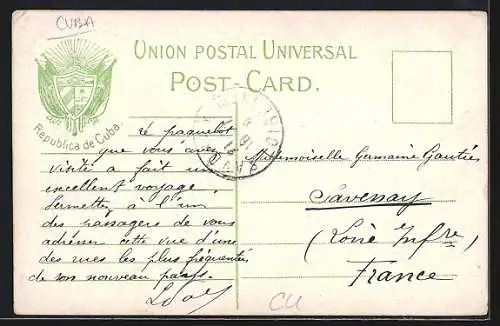 CUBA
UNION POSTAL UNIVERSAL
POST-CARD.
Republica de Cuba.
Le paquebot
que vous avez
visité a fait un
excellent voyage.
Permettez à l'un
des passagers de vous
adresser cette vue d'une
des rues les plus fréquentées
de son nouveau pays.
Mademoiselle Germaine Gautier
Savenay
(Loire Infre)
France
CU